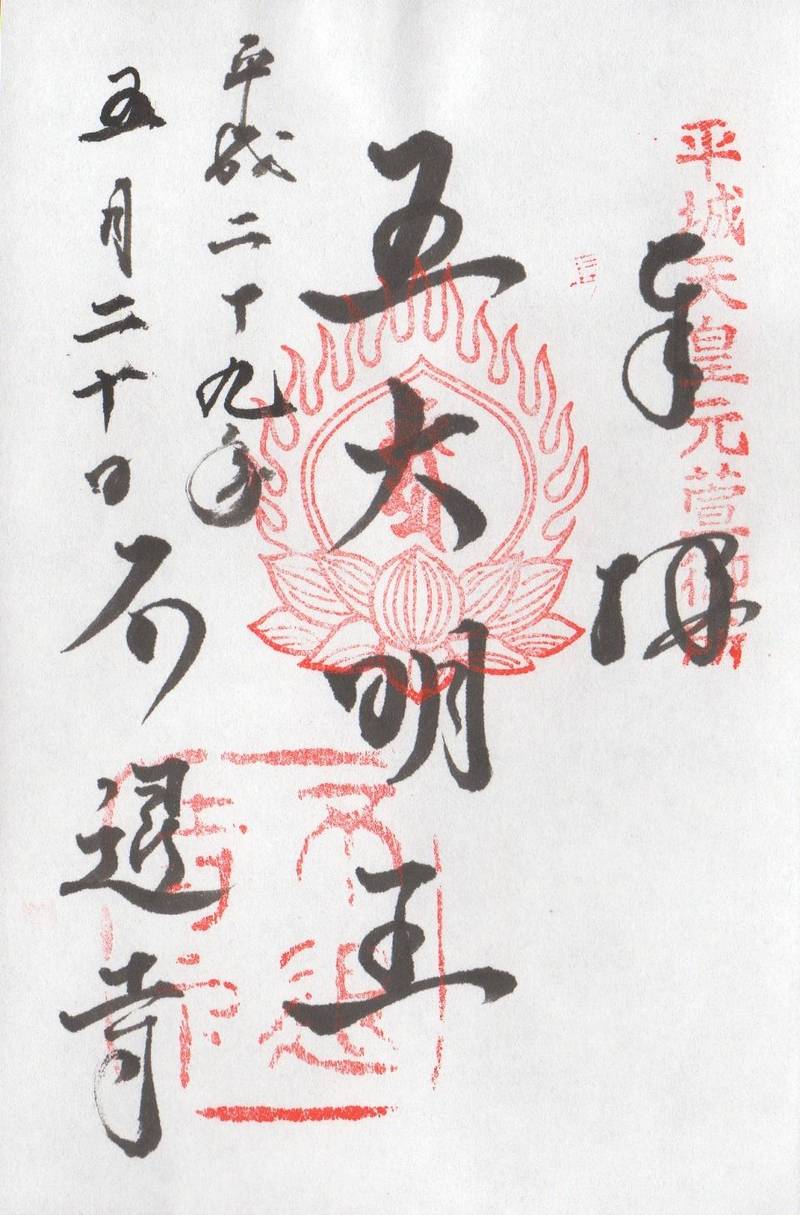 平城天皇元萱御所
奉拝
五大明王
平成二十九年
五月二十日
不退寺
不退寺印